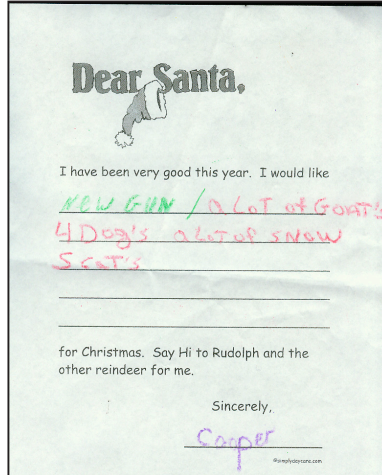 Dear Santa,
I have been very good this year. I would like
NEW GUN / a LoT of GOAT's
4 Dog's a LoT of SNOW
5 caT's
for Christmas. Say Hi to Rudolph and the
other reindeer for me.
Sincerely,
Cooper
©simplydaycare.com